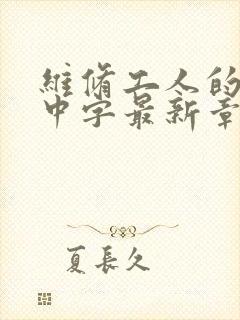 維脩工人的
中字最新章
夏長久